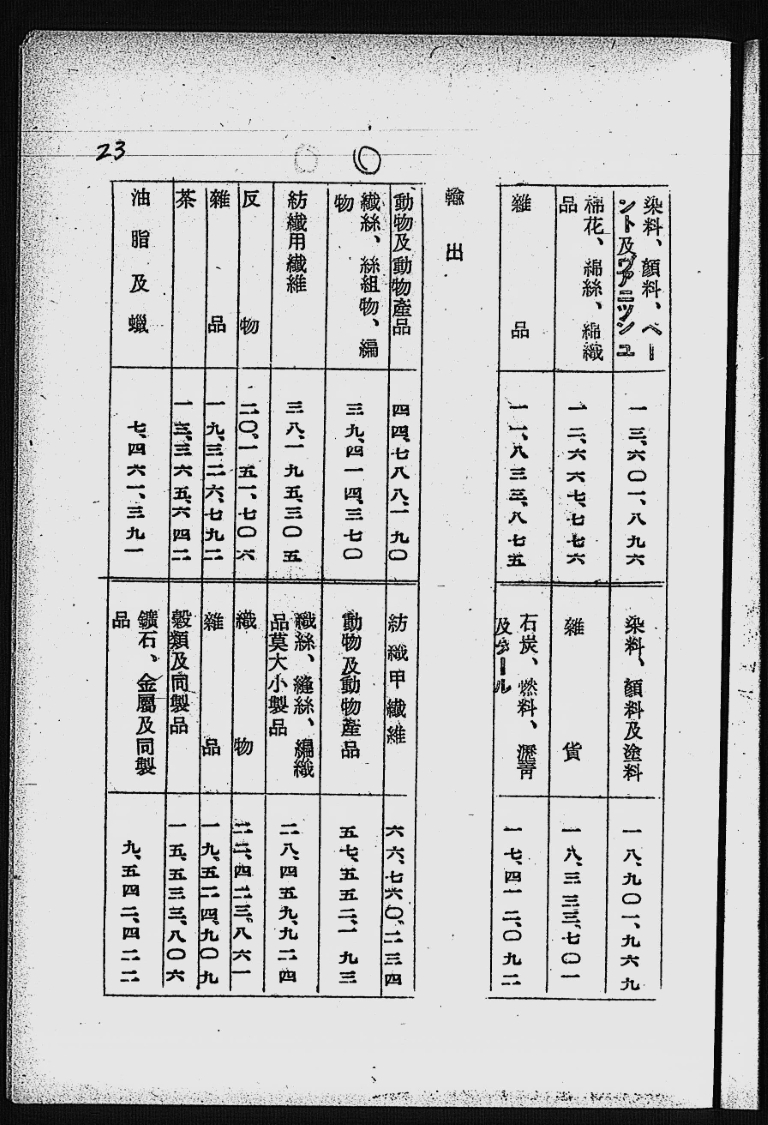 23
染料、顔料、ペー
ント及ヴアニツシユ
一三、六〇一、八九六
染料、顔料及塗料
一八、九〇一、九六九
棉花、綿絲、綿織
品
一二、六六七、七七六
雜貨
一八、三三三、七〇一
雜品
一一、八三三、八七五
石炭、燃料、瀝靑
及タール
一七、四一二、〇九二
輸出
動物及動物產品
四四、七八八、一九〇
紡織甲纖維
六六、七六〇、二三四
織絲、絲組物、編
物
三九、四一四、三七〇
動物及動物產品
五七、五五二、一九三
紡纖用纖維
三八、一九五、三〇五
織絲、縫絲、編織
品莫大小製品
二八、四五九、九二四
反物
二〇、一五一、七〇六
織物
二二、四二三、八六一
雜品
一九、三二六、七九二
雜品
一九、五二四、九〇九
茶
一三、三六五、六四二
穀類及同製品
一五、五三三、八〇六
油脂及蠟
七、四六一、三九一
鑛石、金屬及同製
品
九、五四二、四二二